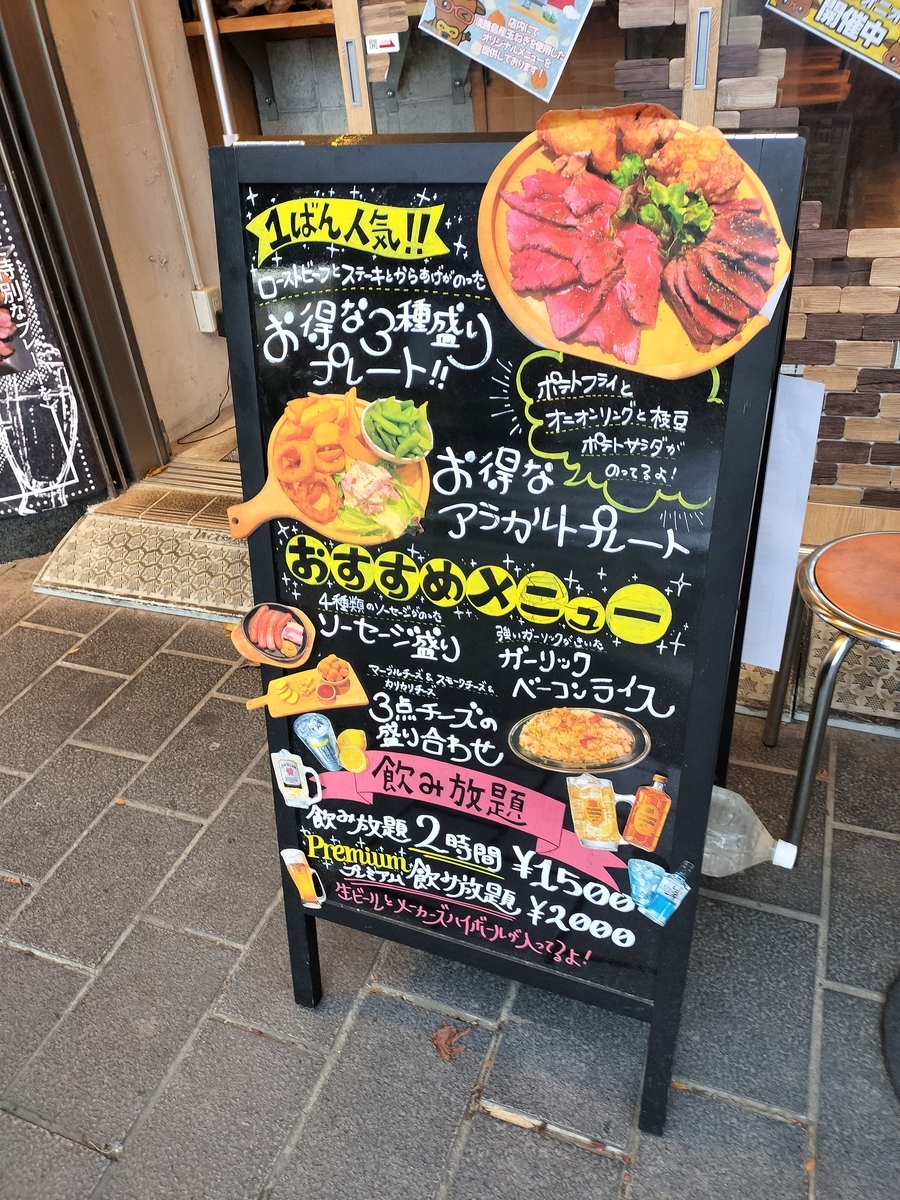 店内にて
淡路島産玉ねぎを使用した
オリジナルメニューを
提供しております!
開催中
開
特別な
1ばん人気!!
ローストビーフとステーキとからあげがのった
お得な3種盛り
プレート!!
ポテトフライと
オニオンリングと枝豆
ポテトサラダが
のってるよ!
お得な
アラカルトプレート
おすすめメニュー
4種類のソーセージがのった
ソーセージ盛り
強いガーリックがきいた
ガーリック
ベーコンライス
マーブルチーズ&スモークチーズ&
カリカリチーズ
3点チーズの
盛り合わせ
飲み放題
飲み放題 2時間 ¥1500
Premium
プレミアム飲み放題 ¥2000
生ビールとメーカーズハイボールが入ってるよ!